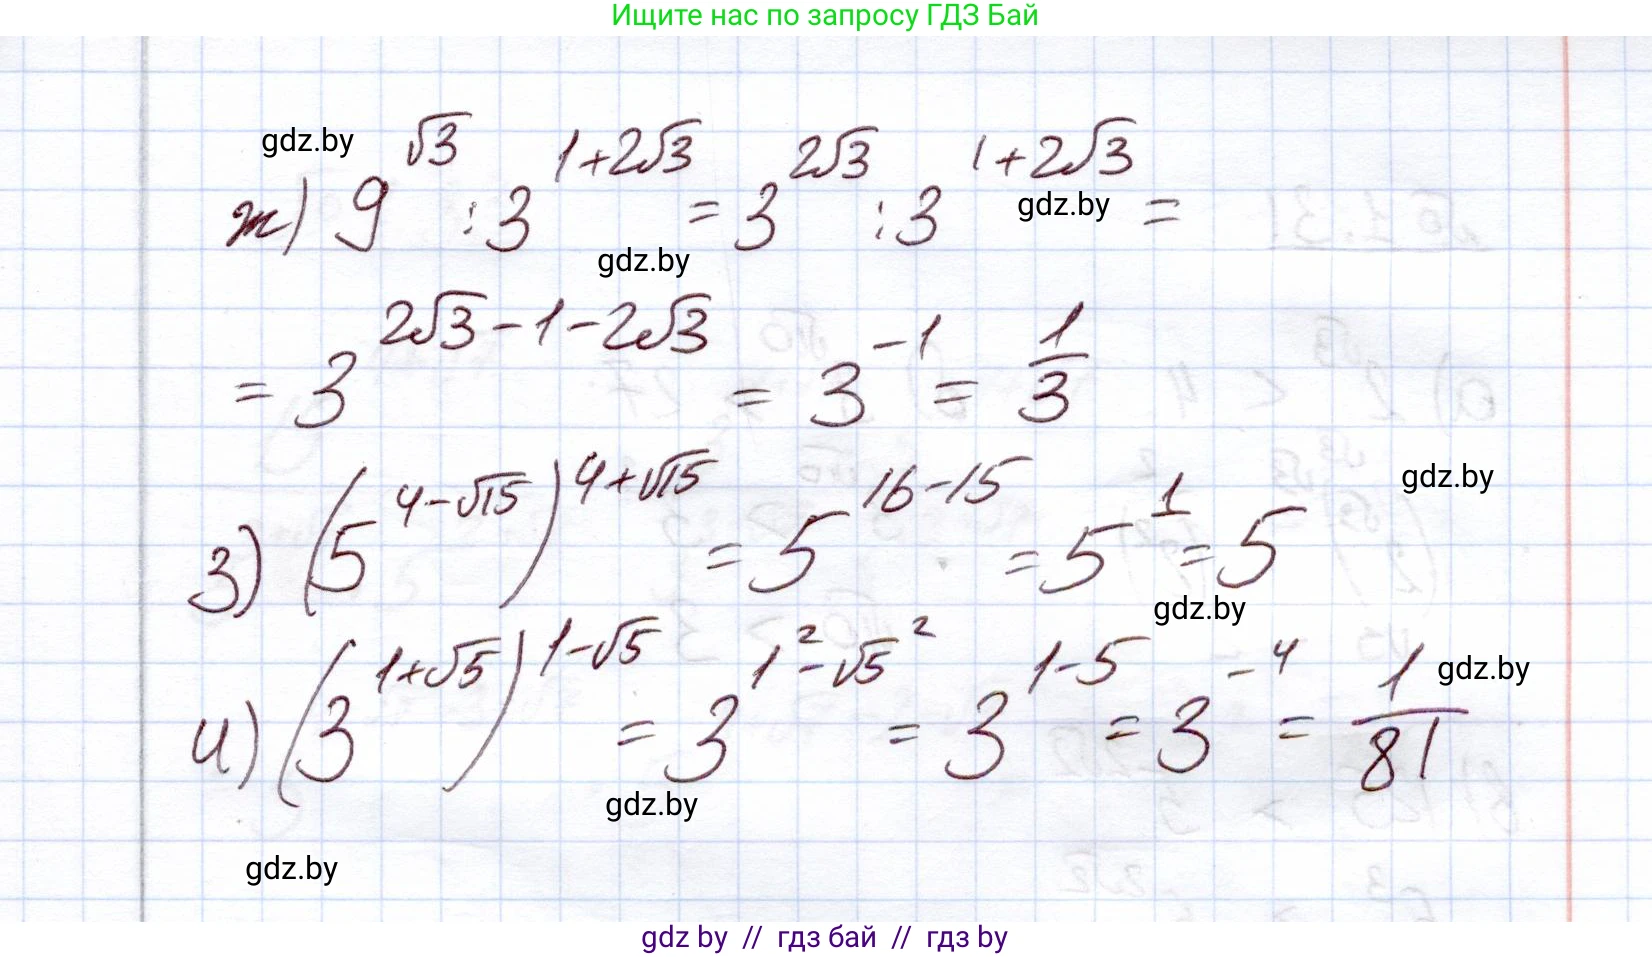 Ищите нас по запросу ГДЗ Бай
gdz.by
ж) 9^√3 : 3^(1+2√3) = 3^(2√3) : 3^(1+2√3) =
gdz.by
gdz.by
= 3^(2√3-1-2√3) = 3^(-1) = 1/3
gdz.by
з) (5^(4-√15))^(4+√15) = 5^(16-15) = 5^1 = 5
gdz.by
и) (3^(1+√5))^(1-√5) = 3^(1²-√5²) = 3^(1-5) = 3^(-4) = 1/81
gdz.by
gdz.by
gdz.by
gdz by // гдз бай // гдз by